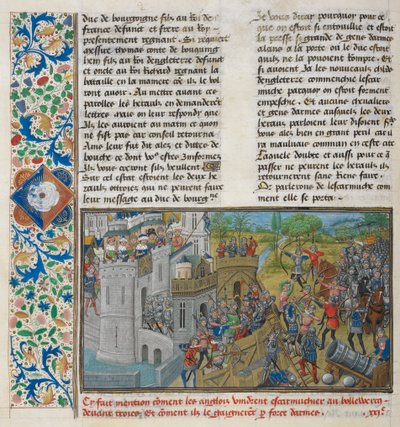 duc de bourgoigne filz au roy de
france defunct et frere au roy
presentement regnant Et requiert
messire thomas conte de bouquing
hem filz au roy dengleterre defunct
et oncle au roy richard regnant la
bataille en la maniere que il le doit
tout auoir. Au mettre auant ces
parolles les heraulx en demanderent
lettres mais on leur respondy que
ilz les auroient au matin et quon
ne fist pas car conseil retourna
leur fut dit alez et dittes de
bouche ce dont vous estes Informez
Il vous ne auront filz heullent
Sur cel estat estoient les deux he
raulx ottroiez qui ne peurent faire
leur message au duc de bourgne
Je vous diray pourquoy pour ce
que on estoit si entouillie et estoit
la presse si grande de gens darmes
alans a la porte ou le duc estoit
quilz ne la pouoient rompre. Et
si auoient Ja les nouueaulx cheulrs
dengleterre commencie lescar
muche parquoy on estoit forment
empeschie. Et aucuns cheualiers
et gens darmes ausquelz les deux
heraulx parloient leur disoient sers
vous alez bien en grant peril car il y
a mauluais commun en ceste cite
Laquele doubte et aussi pour ce a
passer ne peurent les heraulx ilz
retournerent sans riens faire.
Or parlerons de lescarmuche com
ment elle se porta
Cy fait mention comment les anglois vindrent escarmuchier au bolleuercq
deuant troies Et comment ilz le gaignerent par force darmes. xxje